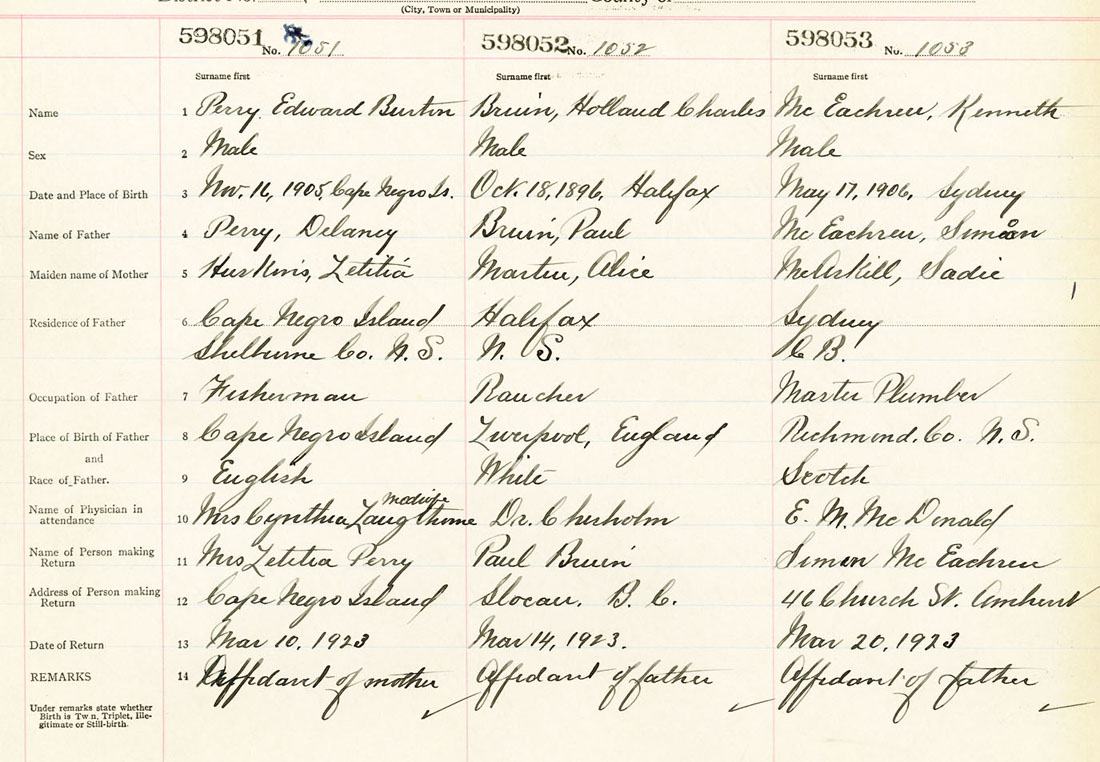 District No. County of
(City, Town or Municipality)
598051 No. 1051 598052 No. 1052 598053 No. 1053
Surname first Surname first Surname first
Name 1 Perry Edward Burton Bruin, Holland Charles Mc Eachren, Kenneth
Sex 2 Male Male Male
Date and Place of Birth 3 Nov. 16, 1905, Cape Negro Is. Oct. 18, 1896, Halifax May 17, 1906, Sydney
Name of Father 4 Perry, Delancy Bruin, Paul Mc Eachren, Simon
Maiden name of Mother 5 Huskins, Letitia Martin, Alice McAskill, Sadie
Residence of Father 6 Cape Negro Island Halifax Sydney
Shelburne Co. N. S. N. S. C B.
Occupation of Father 7 Fisherman Rancher Master Plumber
Place of Birth of Father 8 Cape Negro Island Liverpool, England Richmond. Co. N. S.
and
Race of Father. 9 English White Scotch
midwife
Name of Physician in
attendance 10 Mrs Cynthia Dr. Chisholm E. M. Mc Donald
Name of Person making
Return 11 Mrs Letitia Perry Paul Bruin Simon Mc Eachren
Address of Person making
Return 12 Cape Negro Island Slocan. B. C. 46 Church St. Amherst
Date of Return 13 Mar 10, 1923 Mar 14, 1923. Mar 20, 1923
REMARKS 14 Affidavit of mother Affidavit of father Affidavit of father
Under remarks state whether
Birth is Twin, Triplet, Ille-
gitimate or Still-birth.